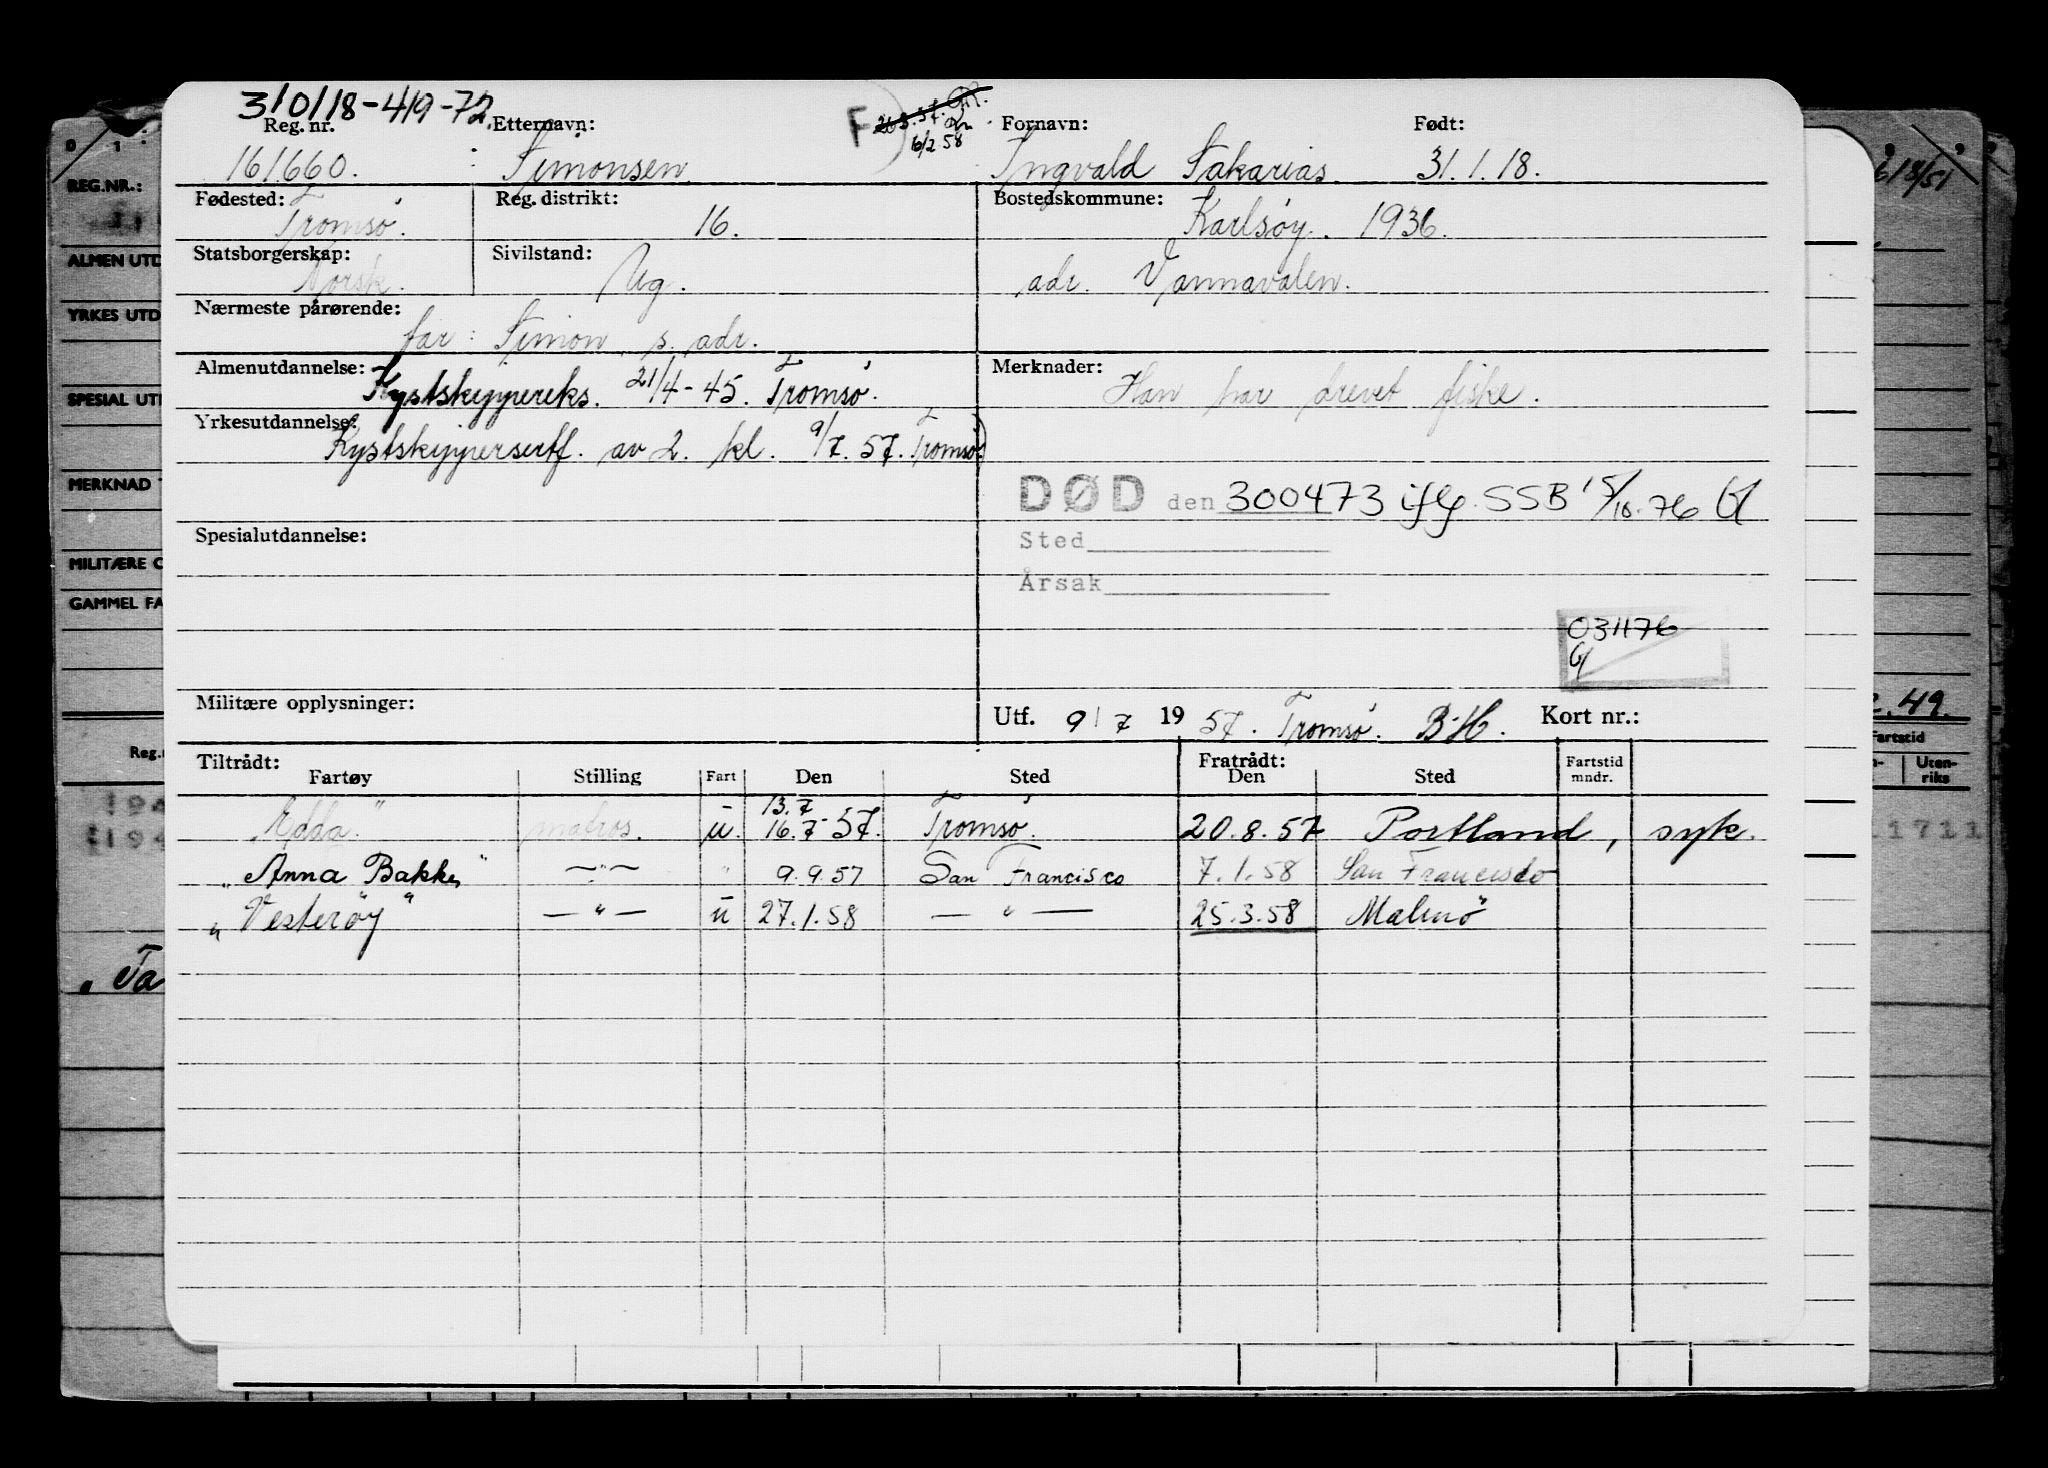 310118-419-72
Reg. nr. Etternavn: F 6/2 58 Fornavn: Født:
161660. Simonsen Ingvald Sakarias. 31.1.18.
Fødested: Reg. distrikt: Bostedskommune:
Tromsø. 16. Karlsøy. 1936.
Statsborgerskap: Sivilstand:
Norsk. Ug. adr. Vannavalen.
Nærmeste pårørende:
far: Simon s. adr.
Almenutdannelse: Kystskippereks. 21/4-45. Tromsø. Merknader: Han har drevet fiske.
Yrkesutdannelse:
Kystskippersertf. av 2. kl. 9/7. 57. Tromsø)
DØD den 300473 iflg. SSB 15/10.76
Spesialutdannelse: Sted
Årsak
031176
Militære opplysninger: Utf. 9/7 1957. Tromsø. B-H. Kort nr.:
Tiltrådt: Fratrådt:
Fartøy Stilling Fart Den Sted Den Sted Fartstid mndr.
13.7
"Edda" matros. u. 16.7-57. Tromsø. 20.8.57 Portland, syk.
"Anna Bakke" —"— " 9.9.57 San Francisco 7.1.58 San Francisco
"Vesterøy" —"— u 27.1.58 —"— 25.3.58 Malmö
0 1
REG.NR.:
ALMEN UTD
YRKES UTD
SPESIAL UT
MERKNAD
MILITÆRE O
GAMMEL FA
Reg.
194
194
"Ta
6/8/51
2.49.
Fartstid
Uten-
riks
1711